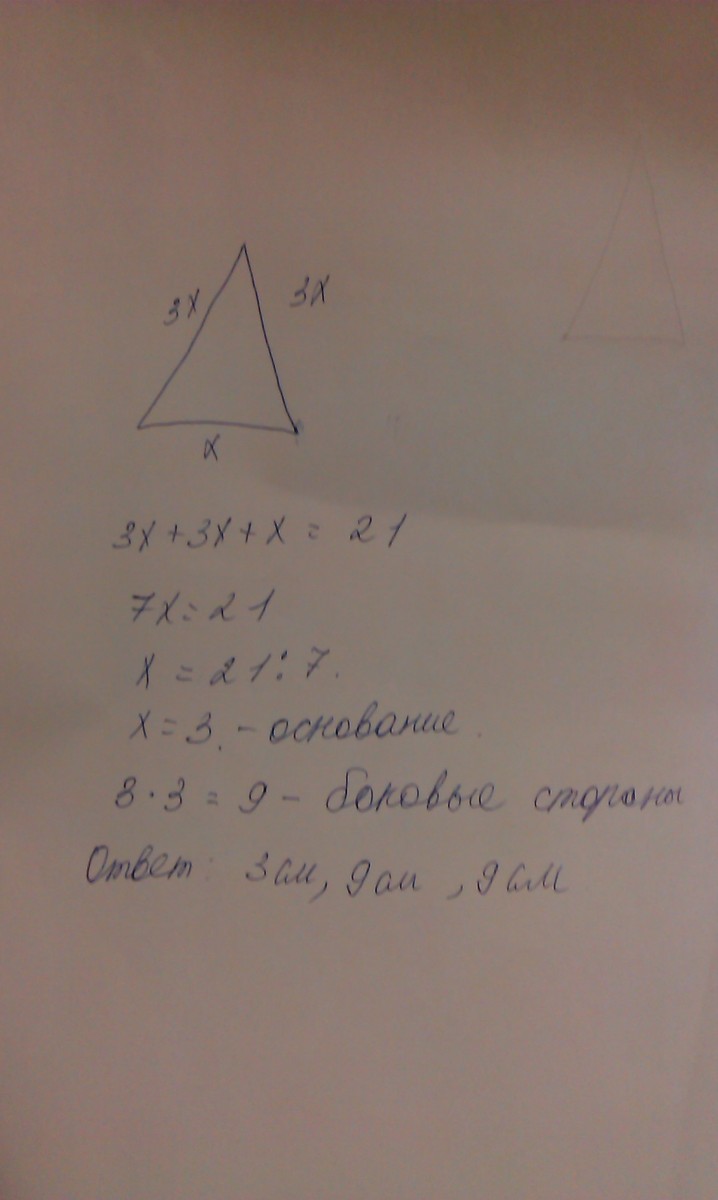 3х
3х
х
3х+3х+х = 21
7х=21
х = 21:7.
х=3. - основание.
3·3 = 9 - боковые стороны
Ответ: 3см, 9см, 9см